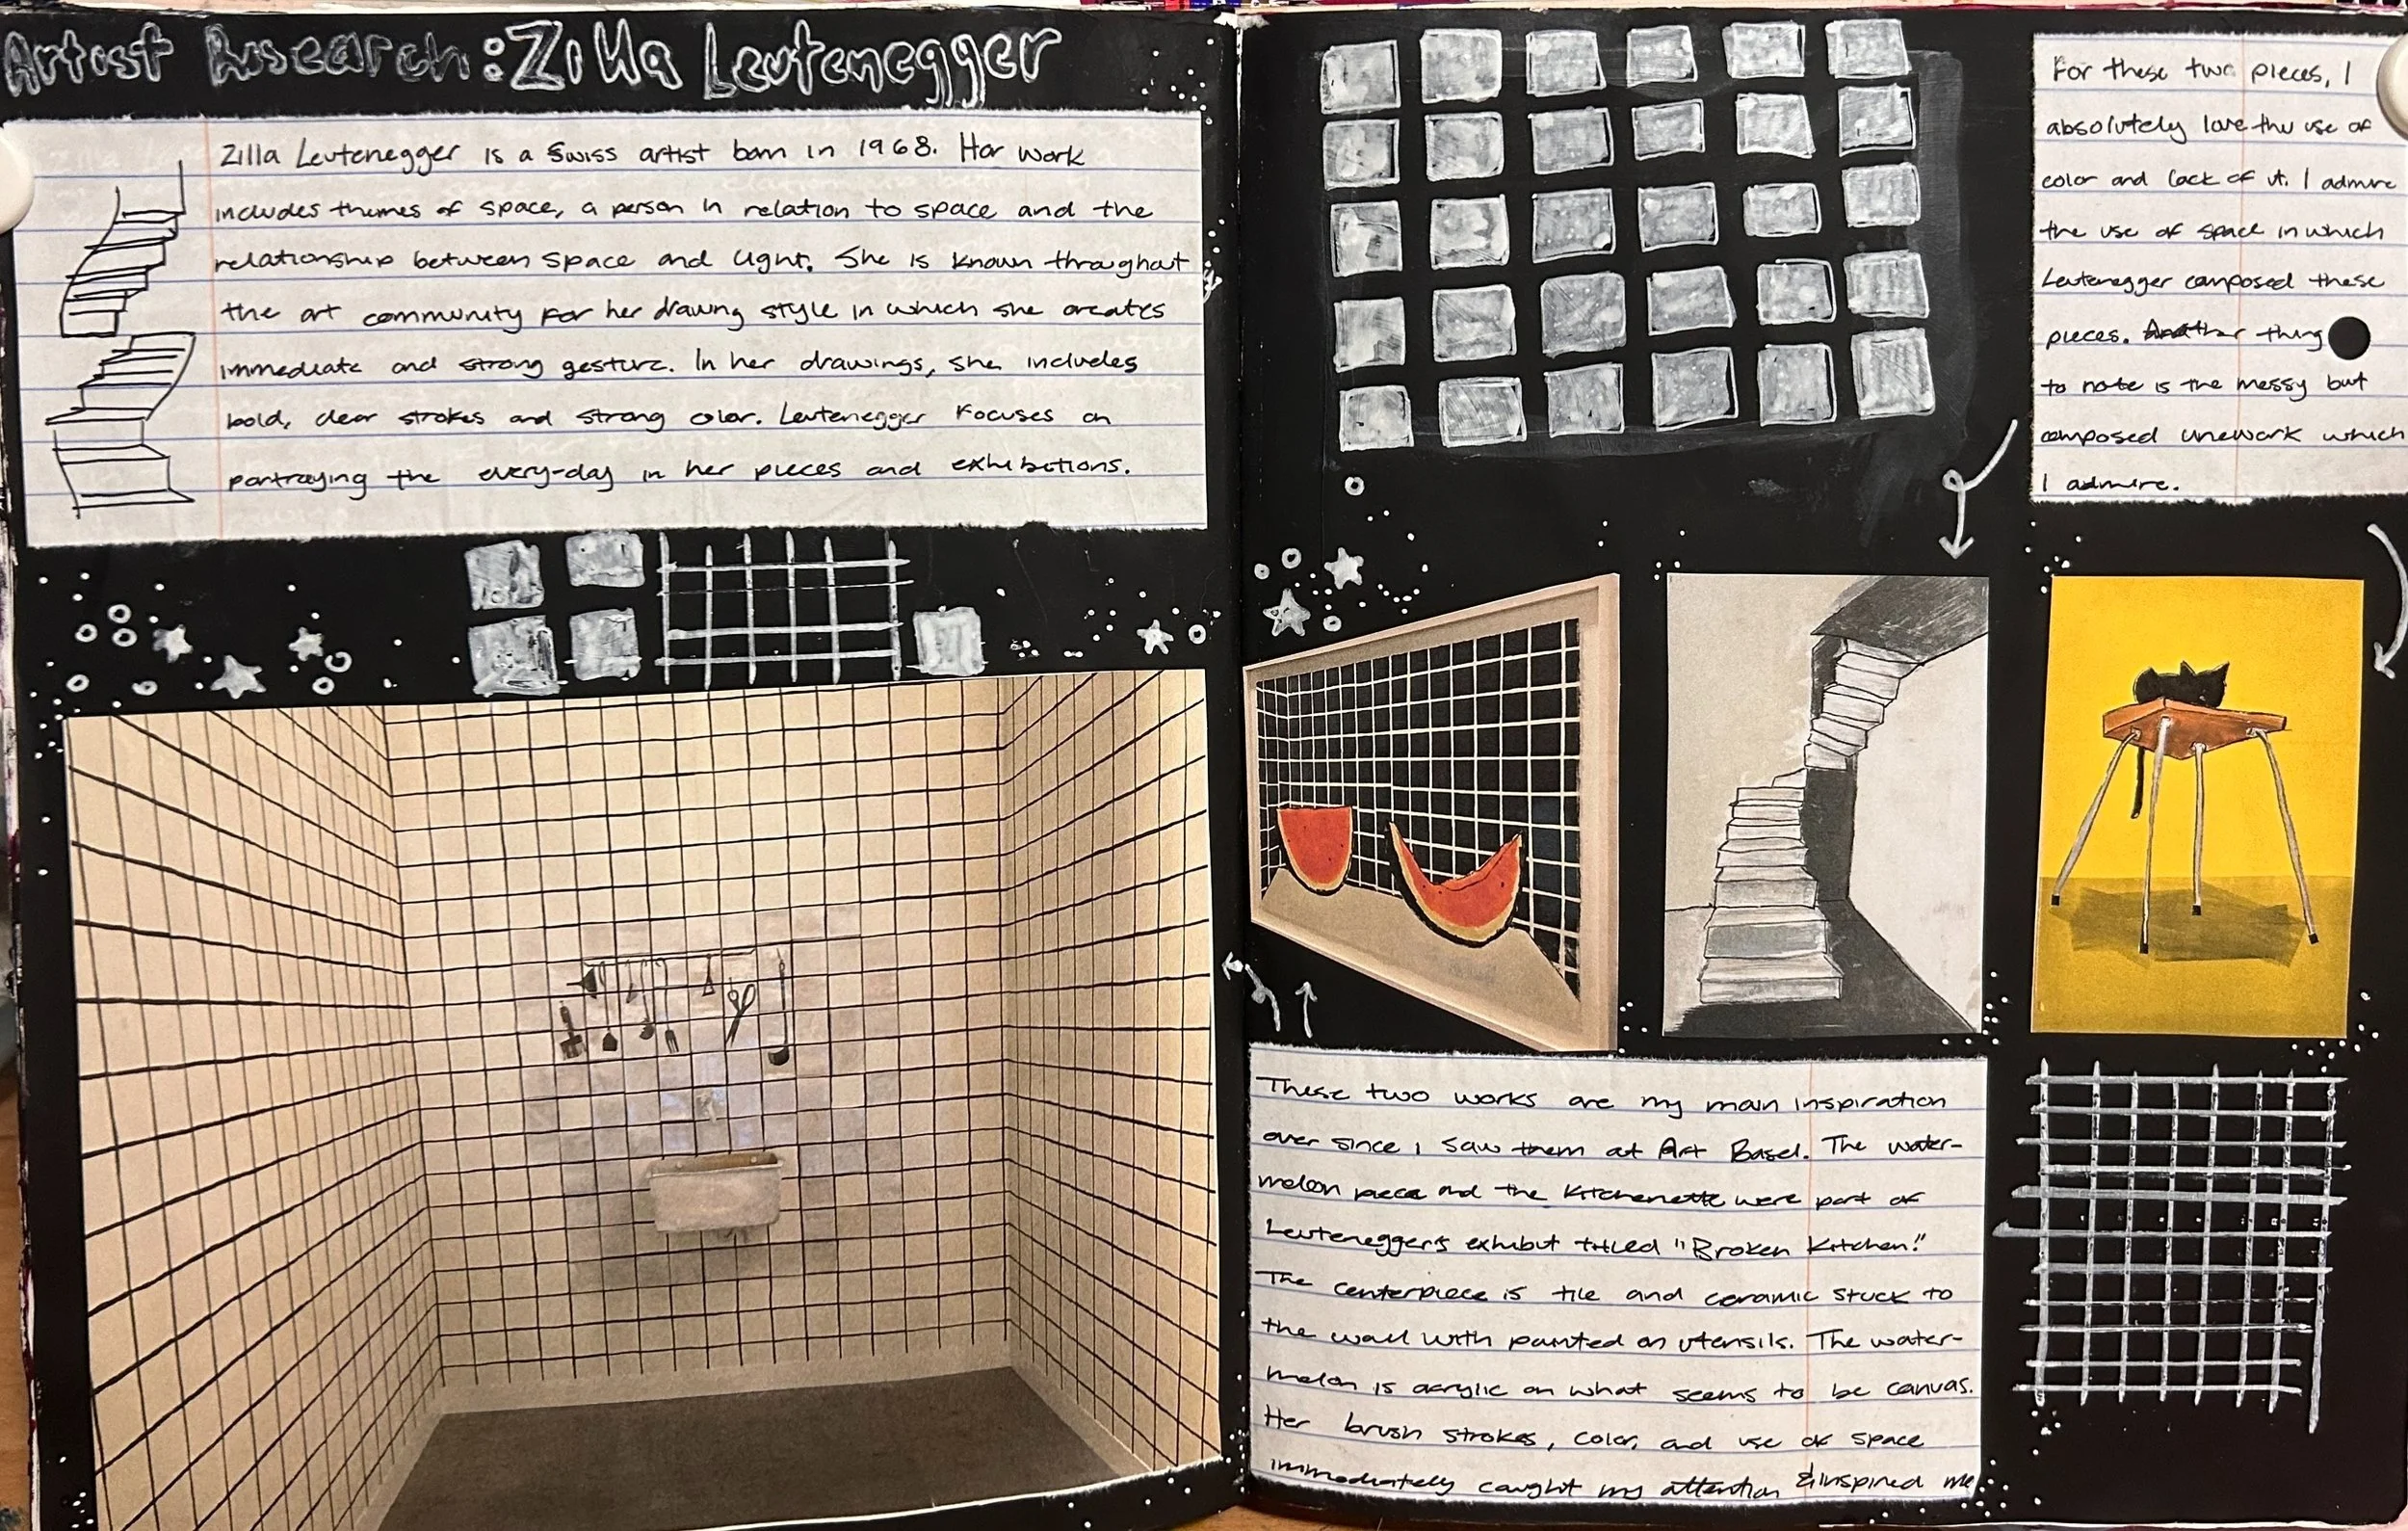 Artist Research: Zilla Leutenegger
Zilla Leutenegger is a Swiss artist born in 1968. Her work
includes themes of space, a person in relation to space and the
relationship between space and light. She is known throughout
the art community for her drawing style in which she creates
immediate and strong gesture. In her drawings, she includes
bold, clear strokes and strong color. Leutenegger focuses on
portraying the every-day in her pieces and exhibitions.
For these two pieces, I
absolutely love the use of
color and lack of it. I admire
the use of space in which
Leutenegger composed these
pieces. Another thing
to note is the messy but
composed linework which
I admire.
These two works are my main inspiration
ever since I saw them at Art Basel. The water-
melon piece and the kitchenette were part of
Leutenegger's exhibit titled "Broken Kitchen."
The centerpiece is tile and ceramic stuck to
the wall with painted on utensils. The water-
melon is acrylic on what seems to be canvas.
Her brush strokes, color, and use of space
immediately caught my attention & inspired me